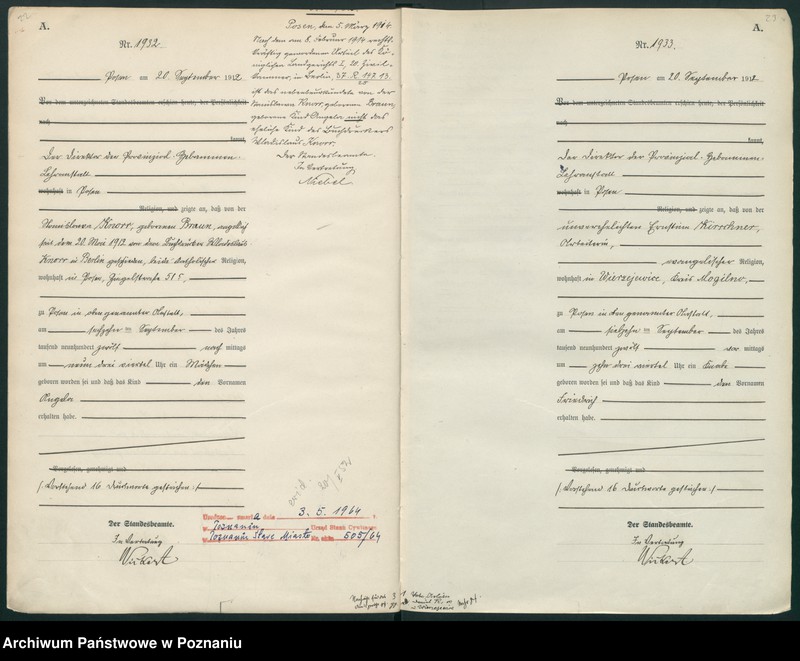 A.
Nr. 1932
Posen am 20. September 1912
Vor dem unterzeichneten Standesbeamten erschien heute, der Persönlichkeit
nach
kannt,
Der Direktor der Provinzial-Hebammen-
Lehranstalt
wohnhaft in Posen
Religion, und zeigte an, daß von der
Knorr, geborenen Braun, angeblich
seit dem 20. Mai 1912 von dem
Knorr in Berlin geschieden, beide katholischer Religion,
wohnhaft in Posen,
zu Posen in oben genannter Anstalt,
am sechzehnten September des Jahres
tausend neunhundert zwölf nach mittags
um neun drei viertel Uhr ein Mädchen
geboren worden sei und daß das Kind den Vornamen
Angela
erhalten habe.
Vorgelesen, genehmigt und
(Vorstehend 16 Druckworte gestrichen.)
Der Standesbeamte.
In Vertretung
Posen, den 5. März 1914.
Nach dem am 8. Februar 1914 rechts-
kräftig gewordenen Urteil des Kö-
niglichen Landgerichts I, 20. Zivil-
kammer, in Berlin, 37. R. 147. 13.
ist das nebenbeurkundete von der
Knorr, geborenen Braun,
geborene Kind Angela nicht das
eheliche Kind des Buchdruckers
Wladislaus Knorr.
Der Standesbeamte.
In Vertretung
a dnia 3. 5. 1964 r.
w Poznaniu Urząd Stanu Cywilnego
Poznań Stare Miasto Nr. aktu 505/64
A.
Nr. 1933.
Posen am 20. September 1912.
Vor dem unterzeichneten Standesbeamten erschien heute, der Persönlichkeit
nach
kannt,
Der Direktor der Provinzial-Hebammen-
Lehranstalt
wohnhaft in Posen
Religion, und zeigte an, daß von der
unverehelichten Ernstine Kirschner,
Arbeiterin,
evangelischer Religion,
wohnhaft in Wierzejewice, Kreis Mogilno,
zu Posen in den genannter Anstalt,
am siebzehnten September des Jahres
tausend neunhundert zwölf vor mittags
um zehn drei viertel Uhr ein Knabe
geboren worden sei und daß das Kind den Vornamen
Friedrich
erhalten habe.
Vorgelesen, genehmigt und
(Vorstehend 16 Druckworte gestrichen.)
Der Standesbeamte.
In Vertretung
Archiwum Państwowe w Poznaniu